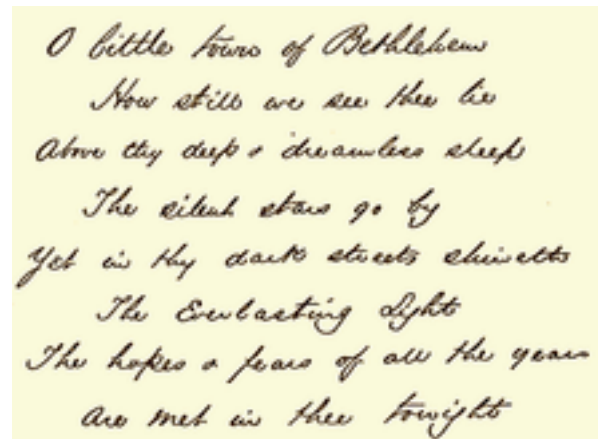 O little town of Bethlehem
How still we see thee lie
Above thy deep & dreamless sleep
The silent stars go by
Yet in thy dark streets shineth
The Everlasting Light
The hopes & fears of all the years
Are met in thee tonight